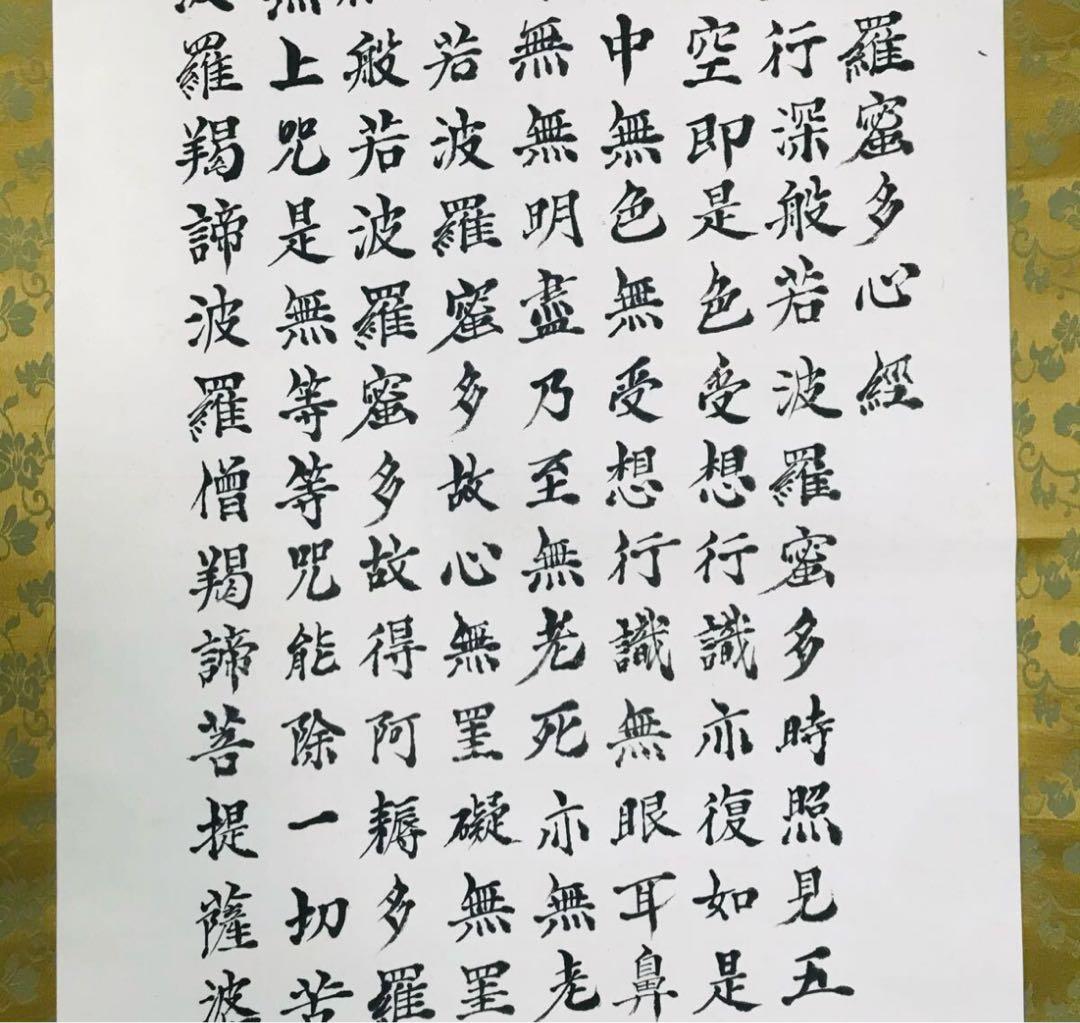 羅蜜多心經
行深般若波羅蜜多時照見五
空即是色受想行識亦復如是
中無色無受想行識無眼耳鼻
無無明盡乃至無老死亦無老
若波羅蜜多故心無罣礙無罣
般若波羅蜜多故得阿耨多羅
無上咒是無等等咒能除一切苦
波羅羯諦波羅僧羯諦菩提薩婆